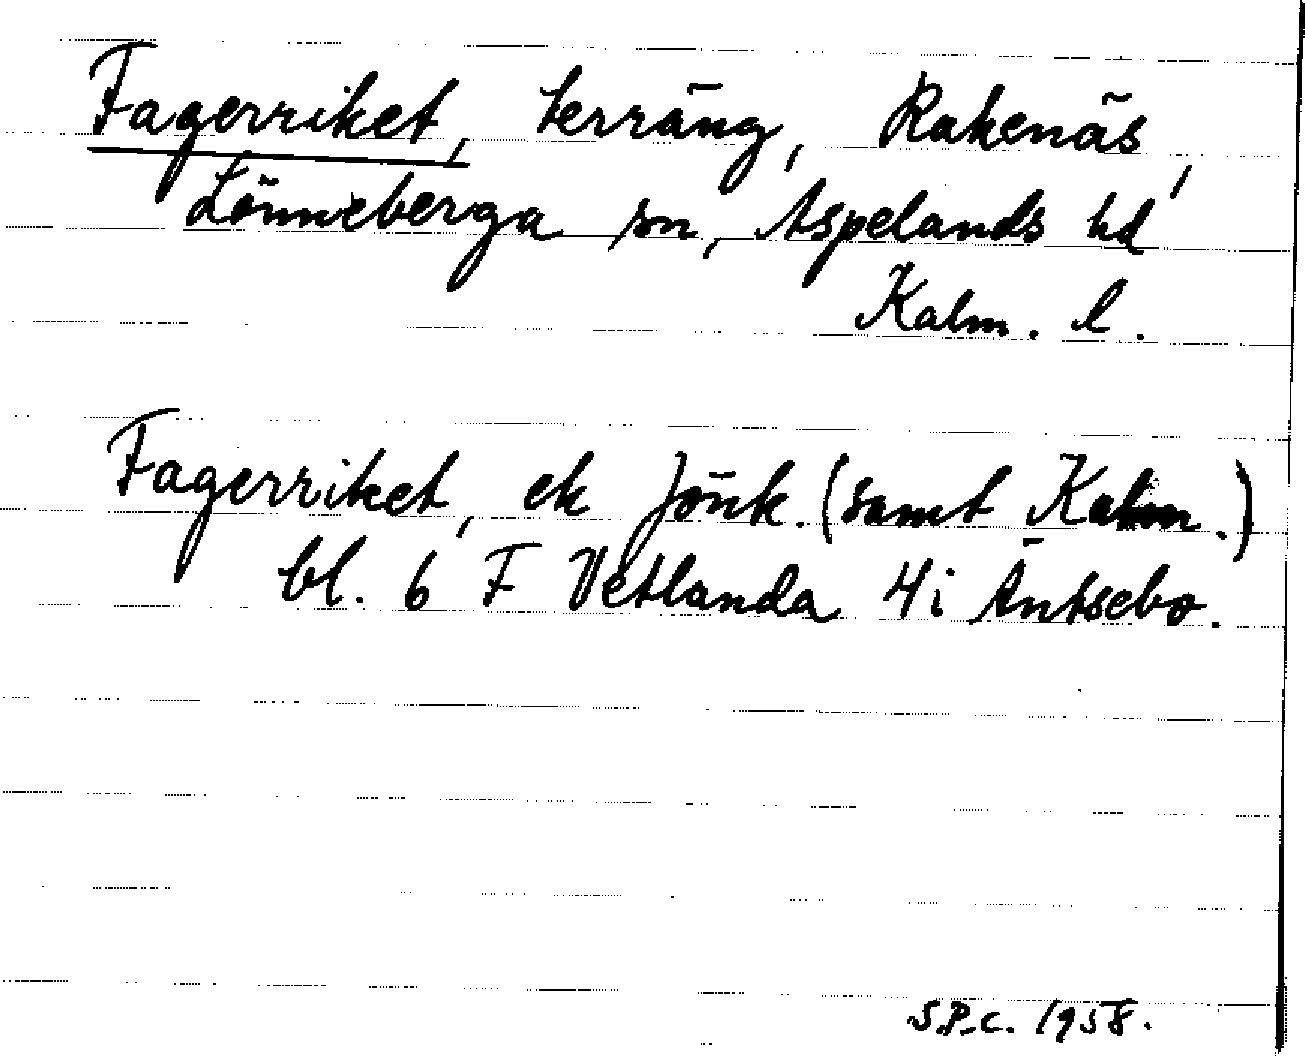 Fagerriket, terräng, Rakenäs,
Lönneberga sn, Aspelands hd
Kalm. l.
Fagerriket, ek Jönk. (samt Kalm.)
bl. 6 F Vetlanda 4i Äntsebo.
S.P.C. 1958.